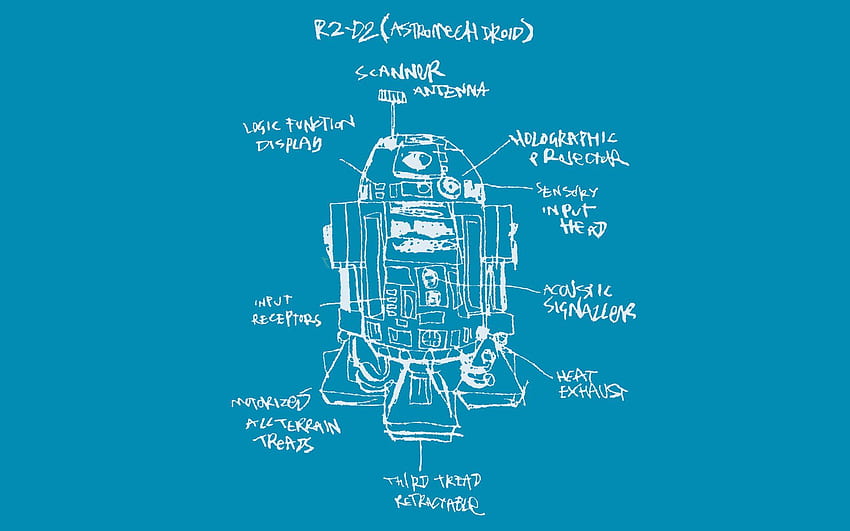 R2-D2 (ASTROMECH DROID)
SCANNER
ANTENNA
LOGIC FUNCTION
DISPLAY
HOLOGRAPHIC
PROJECTOR
SENSORY
INPUT
HEAD
INPUT
RECEPTORS
ACOUSTIC
SIGNALLERS
HEAT
EXHAUST
MOTORIZED
ALL TERRAIN
TREADS
THIRD TREAD
RETRACTABLE